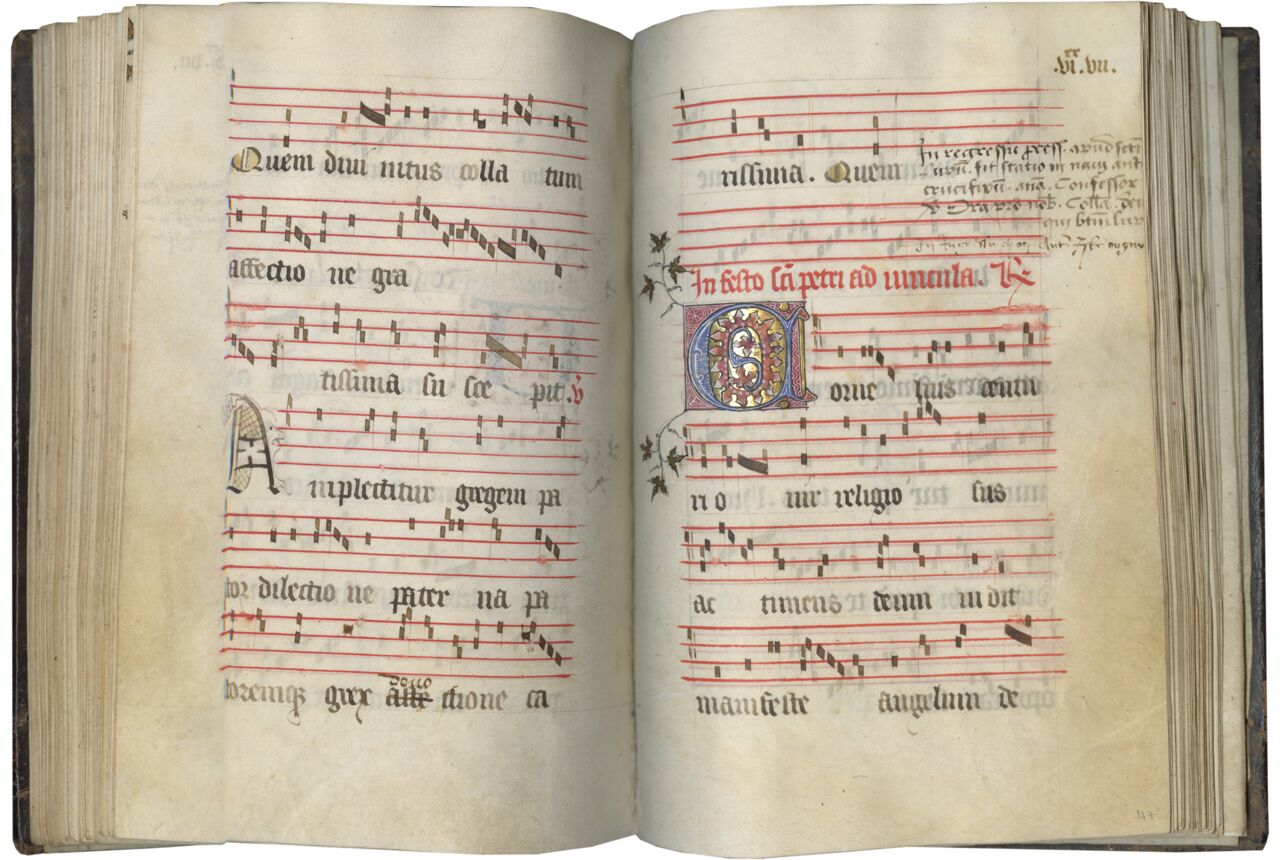 Quem divi nitus colla tum
affectio ne gra
tissima su sce pit. V
Amplectitur gregem pa
tor dilectio ne pater na pa
toremque grex affe ctione ca
devo
xx
.vi.vii.
rissima. Quem
In regressu process. apud
fit statio in navi ant
crucifixum. ana. Confessor
V Ora pro nob. Collā. deus
qui btm
In festo sci petri ad vincula. R
Corne lius centu
ri o vir religio sus
ac timens deum vi dit
manifeste angelum de
47